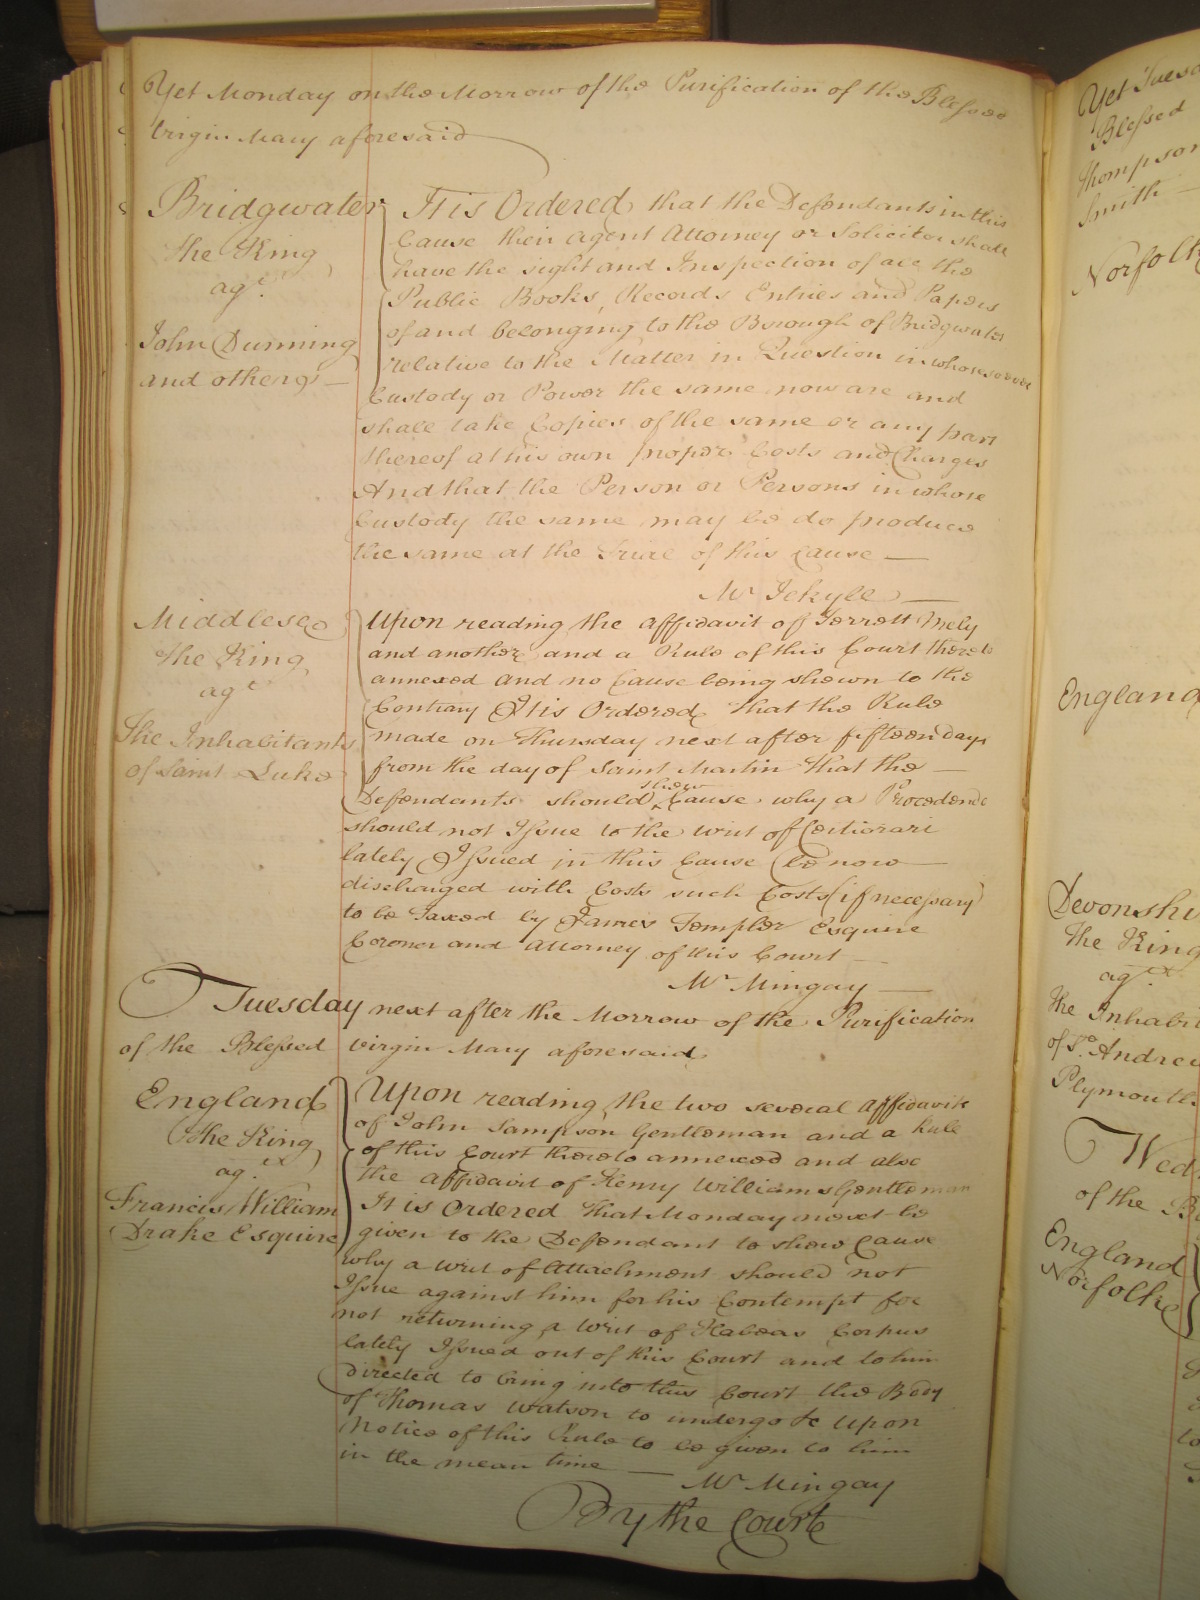 Yet Monday on the Morrow of the Purification of the Blessed
Virgin Mary aforesaid
Bridgwater
the King
agt.
John Dunning
and others
It is Ordered that the Defendants in this
Cause their Agent Attorney or Solicitor shall
have the sight and Inspection of all the
Public Books, Records Entries and Papers
of and belonging to the Borough of Bridgwater
relative to the Matter in Question in whosesoever
Custody or Power the same now are and
shall take Copies of the same or any part
thereof at his own proper Costs and Charges
And that the Person or Persons in whose
Custody the same may be do produce
the same at the Trial of this Cause
Mr. Jekyll
Middlesex
the King
agt.
The Inhabitants
of Saint Luke
Upon reading the affidavit of Jerrett
and another and a Rule of this Court thereto
annexed and no Cause being shewn to the
Contrary It is Ordered that the Rule
made on Thursday next after fifteen days
from the day of Saint Martin that the
Defendants should shew Cause why a Procedendo
should not Issue to the writ of Certiorari
lately Issued in this Cause be now
discharged with Costs such Costs (if necessary)
to be Taxed by James Templer Esquire
Coroner and Attorney of this Court
Mr. Mingay
Tuesday next after the Morrow of the Purification
of the Blessed Virgin Mary aforesaid
England
The King
agt.
Francis William
Drake Esquire
Upon reading the two several affidavits
of John Sampson Gentleman and a Rule
of this Court thereto annexed and also
the affidavit of Henry Williams Gentleman
It is Ordered that Monday next be
given to the Defendant to shew Cause
why a writ of Attachment should not
Issue against him for his Contempt for
not returning a Writ of Habeas Corpus
lately Issued out of this Court and to him
directed to bring into this Court the Body
of Thomas Watson to undergo &c Upon
Notice of this Rule to be given to him
in the mean time
Mr. Mingay
By the Court
Yet Tuesd
Blessed
Thompson
Smith
Norfolk
England
Devonshi
The King
agt.
The Inhabi
of St. Andrew
Plymouth
Wed
of the B
England
Norfolk